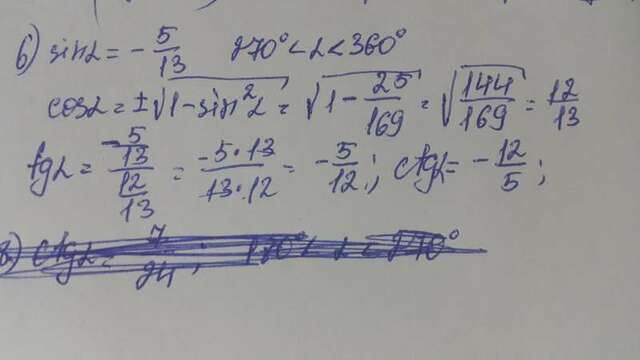 6) sinα = -5/13   270° < α < 360°
cosα = ±√(1-sin²α) = √(1-25/169) = √(144/169) = 12/13
tgα = (-5/13)/(12/13) = (-5·13)/(13·12) = -5/12; ctgα = -12/5;
8) ctgα = 7/24;   180° < α < 270°